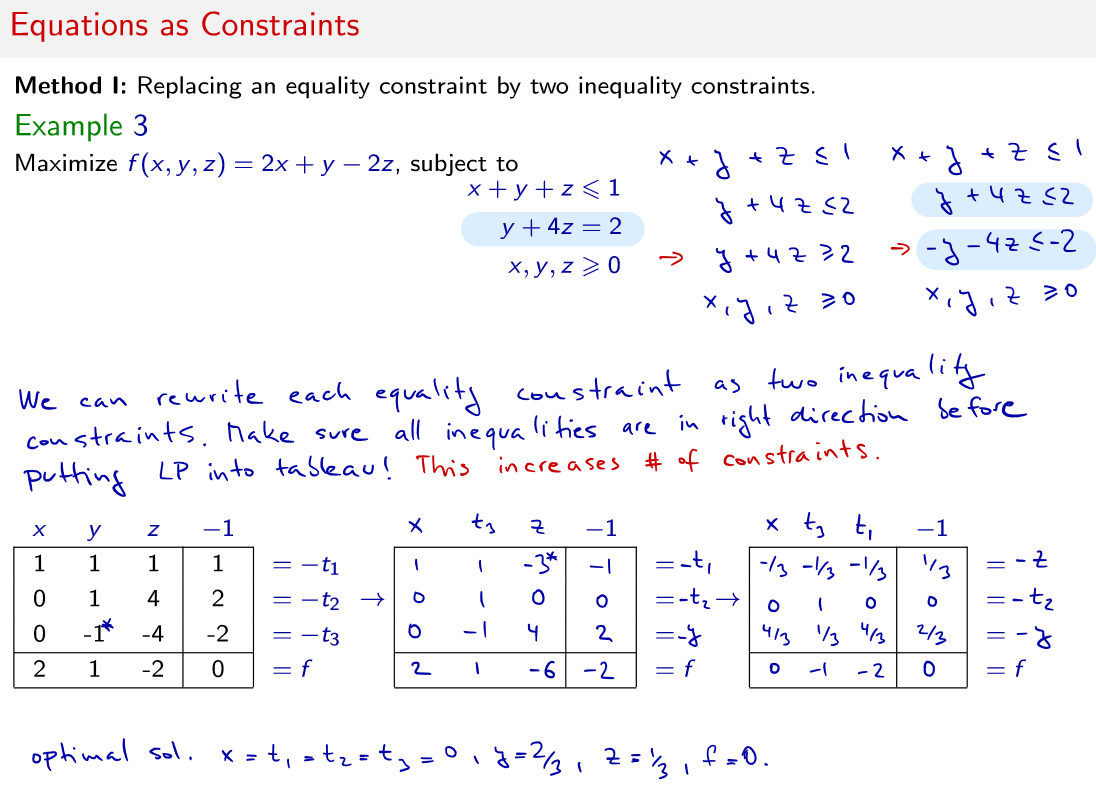 Equations as Constraints
Method I: Replacing an equality constraint by two inequality constraints.
Example 3
Maximize f(x, y, z) = 2x + y − 2z, subject to
x + y + z ⩽ 1
y + 4z = 2
x, y, z ⩾ 0
x + y + z ≤ 1
y + 4z ≤ 2
→ y + 4z ≥ 2
x, y, z ≥ 0
x + y + z ≤ 1
y + 4z ≤ 2
→ -y - 4z ≤ -2
x, y, z ≥ 0
We can rewrite each equality constraint as two inequality
constraints. Make sure all inequalities are in right direction before
putting LP into tableau! This increases # of constraints.
x y z −1
1 1 1 1 = −t₁
0 1 4 2 = −t₂ →
0 -1* -4 -2 = −t₃
2 1 -2 0 = f
x t₃ z −1
1 1 -3* -1 = -t₁
0 1 0 0 = -t₂ →
0 -1 4 2 = -y
2 1 -6 -2 = f
x t₃ t₁ −1
-1/3 -1/3 -1/3 1/3 = -z
0 1 0 0 = -t₂
4/3 1/3 4/3 2/3 = -y
0 -1 -2 0 = f
optimal sol. x = t₁ = t₂ = t₃ = 0, y = 2/3, z = 1/3, f = 0.